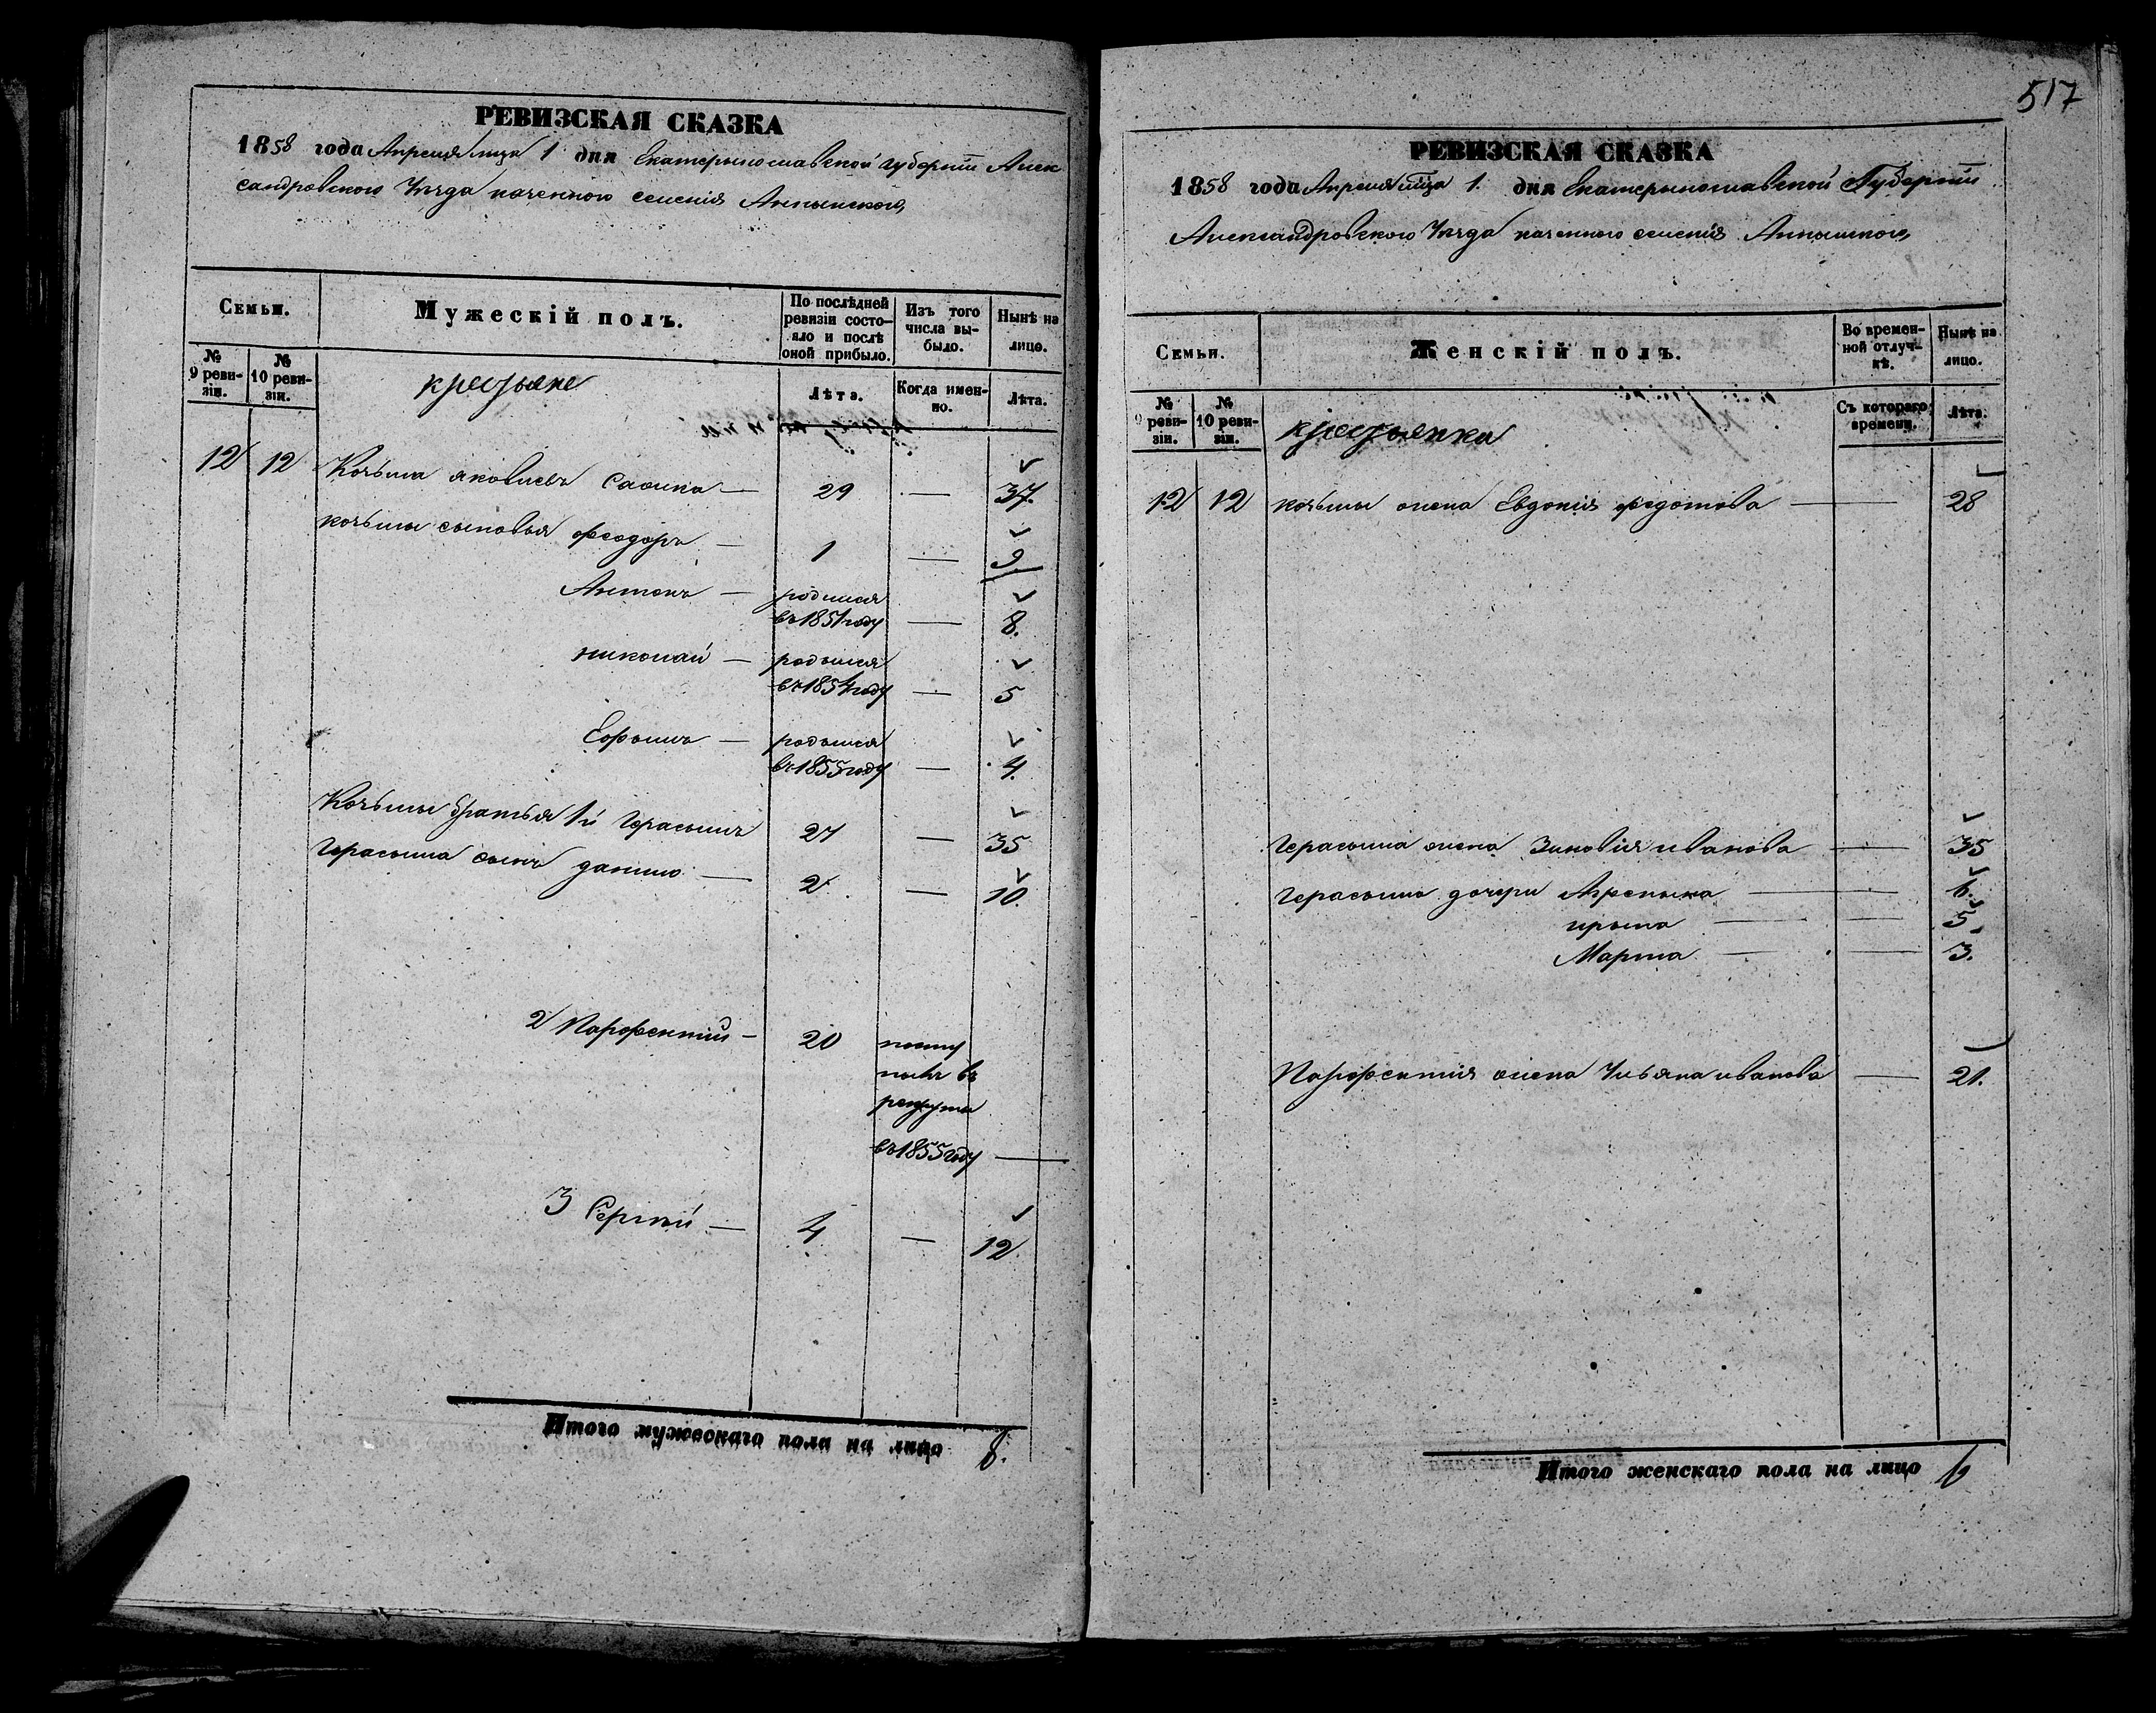 РЕВИЗСКАЯ СКАЗКА
1858 года Апреля мца 1 дня Екатерынославской губернии Алек
сандровского Уезда казенного селения
Семьи.
Мужескій полъ.
По послѣдней ревизіи состояло и послѣ оной прибыло.
Изъ того числа выбыло.
Нынѣ на лицо.
№ 9 ревизіи.
№ 10 ревизіи.
крестьяне
Лѣта.
Когда именно.
Лѣта.
12 12 Козьма яковлевъ — 29 — 37.
козьмы сыновья феодоръ — 1 — 9.
Антонъ — родился
въ 1851 году — 8.
николай — родылся
въ 1854 году — 5
Ефымъ — родылся
въ 1855 году — 4.
Козьмы братья 1й Герасымъ 27 — 35
Герасыма сынъ данило — 2 — 10.
2 Парфентий — 20 посту
пылъ въ
рекруты
въ 1855 году —
3 Сергѣй — 4 — 12.
Итого мужескаго пола на лицо 8.
517
РЕВИЗСКАЯ СКАЗКА
1858 года Апреля мца 1. дня Екатерынославской Губернии
Александровского Уезда казенного селения
Семьи.
Женскій полъ.
Во временной отлучкѣ.
Нынѣ на лицо.
№ 9 ревизіи.
№ 10 ревизіи.
крестьянки
Съ котораго времени.
Лѣта.
12 12 козьмы жена Евдокия федотова — 28
Герасыма жена Зиновия иванова — 35
Герасыма дочери Агрепына — 6.
ирына — 5.
Марта — 3.
Парфентия жена Ульяна иванова — 21.
Итого женскаго пола на лицо 6